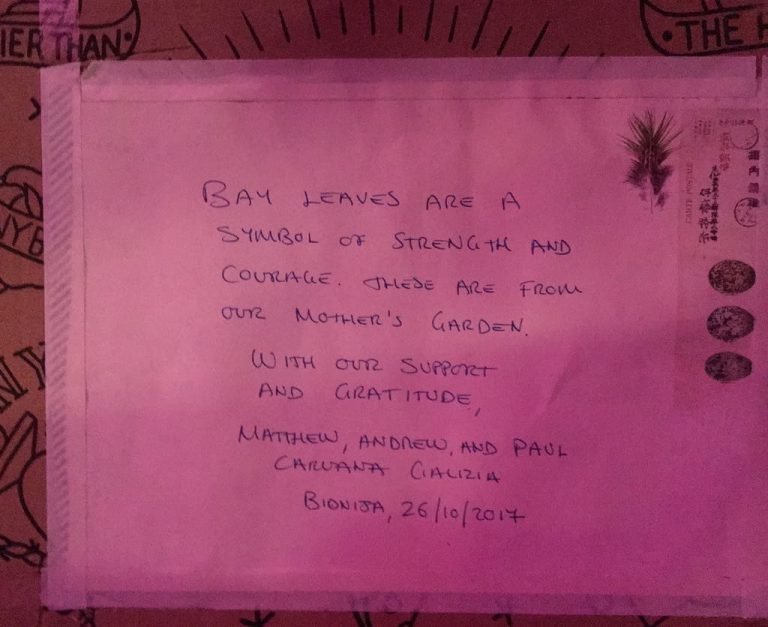 IER THAN
THE H
BAY LEAVES ARE A
SYMBOL OF STRENGTH AND
COURAGE. THESE ARE FROM
OUR MOTHER'S GARDEN.
WITH OUR SUPPORT
AND GRATITUDE,
MATTHEW, ANDREW, AND PAUL
CARUANA GALIZIA
BIDNIJA, 26/10/2017
CARTE POSTALE